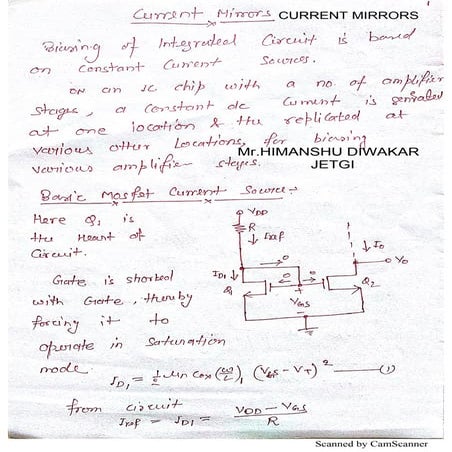 Current Mirrors CURRENT MIRRORS
Biasing of Integrated Circuit is based
on constant current sources.
on an IC chip with a no. of amplifier
stages, a constant dc current is genrated
at one location & the replicated at
various other locations, for biasing
various amplifier stages.
Mr.HIMANSHU DIWAKAR
JETGI
Basic Mosfet Current Source :-
Here Q1 is
the Heart of
circuit.
Gate is shorted
with Gate, thereby
forcing it to
operate in Saturation
mode.
VDD
R
Iref
ID1
Q1
0
0
VGS
Q2
Io
Vo
ID1 = 1/2 μn Cox (W/L)1 (VGS - VT)² —— (1)
from circuit
Iref = ID1 = VDD - VGS / R
Scanned by CamScanner